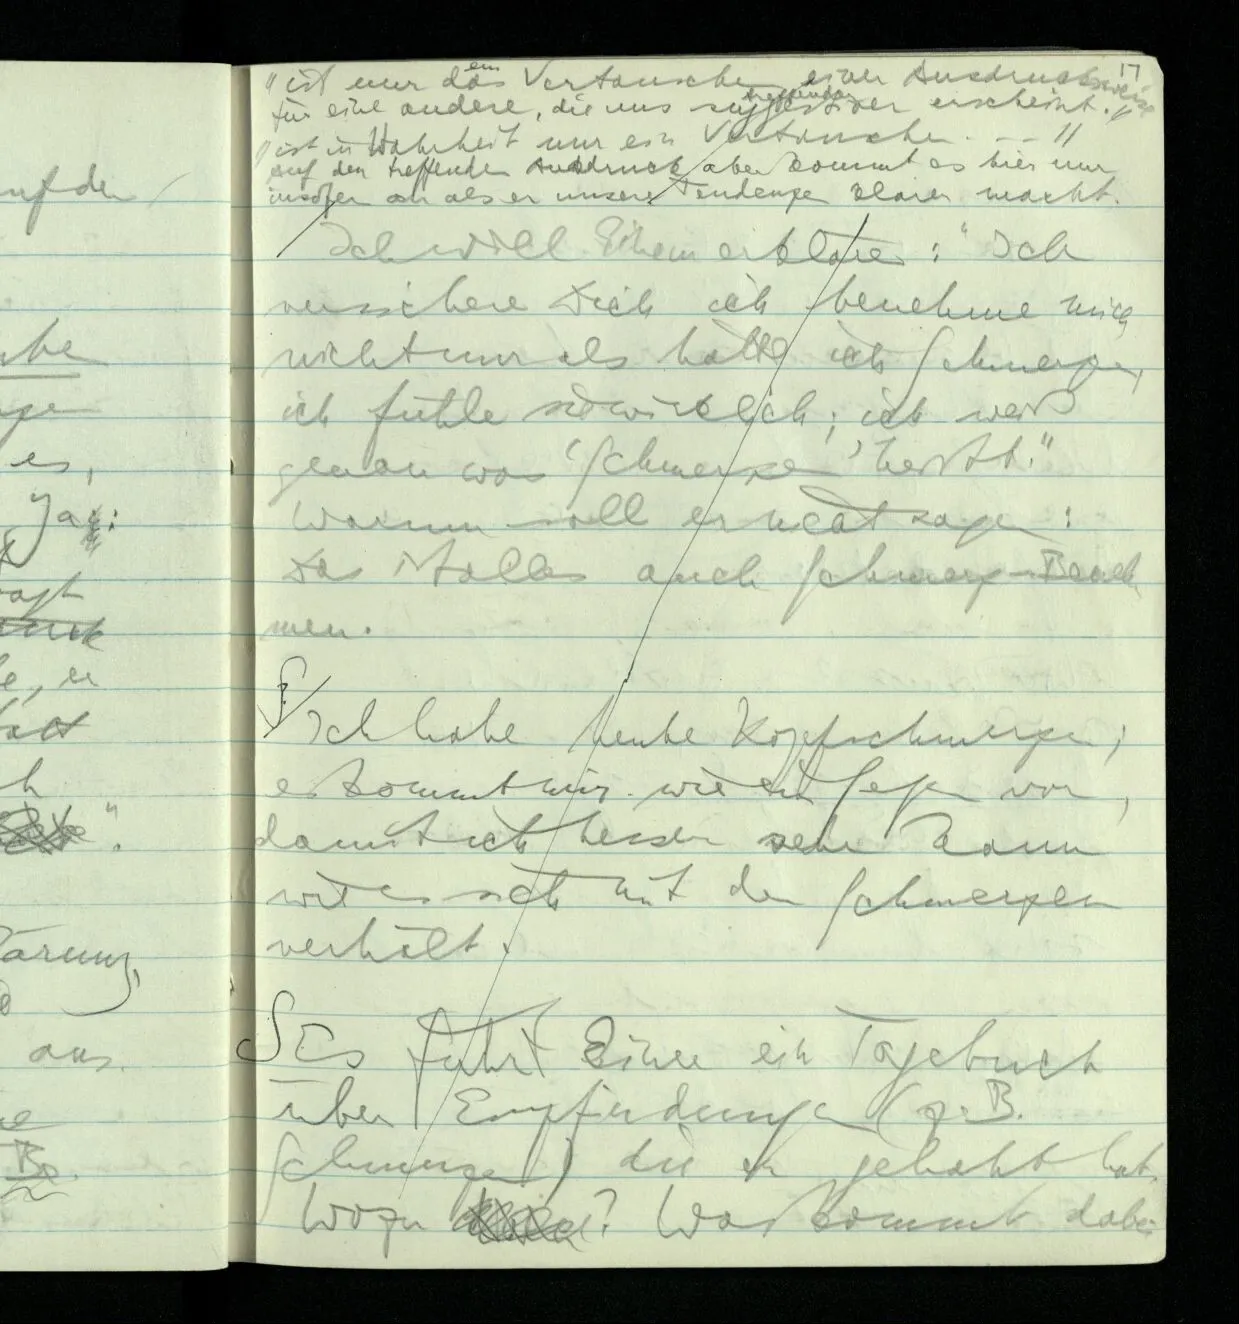 17
"ist nur das ein Vertauschen einer Ausdrucksweise
für eine andere, die uns suggestiver treffender erscheint."
"ist in Wahrheit nur ein Vertauschen. – – "
auf den treffenden Ausdruck aber kommt es hier nur
insofern an als er unsere Tendenzen klarer macht.
Ich will Einem erklären: "Ich
versichere Dich ich benehme mich
nicht nur als hätte ich Schmerzen,
ich fühle sie wirklich; ich weiß
genau was 'Schmerzen' heißt."
Warum soll er nicht sagen:
Das ist alles auch Schmerz-Beneh
men.
Ich habe heute Kopfschmerzen;
es kommt mir wie ein Segen vor,
damit ich besser sehen kann
wie es sich mit den Schmerzen
verhält.
Es führt Einer ein Tagebuch
über Empfindungen (z.B.
Schmerzen) die er gehabt hat.
Wozu ? Was kommt dabei
auf den
es,
Ja:
sagt
er
ärung,
aus.
B.